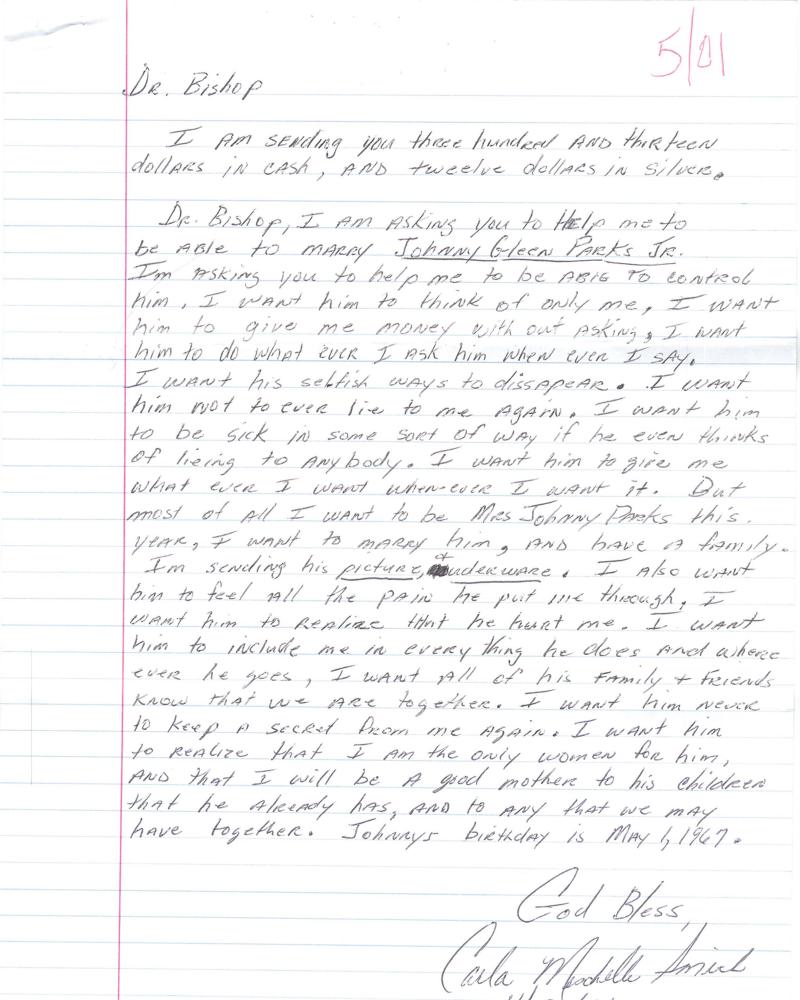 5/01
Dr. Bishop
I am sending you three hundred and thirteen
dollars in cash, and twelve dollars in silver.
Dr. Bishop, I am asking you to Help me to
be able to marry Johnny Gleen Parks Jr.
I'm asking you to help me to be able to control
him. I want him to think of only me, I want
him to give me money with out asking, I want
him to do what ever I ask him when ever I say.
I want his selfish ways to dissapear. I want
him not to ever lie to me again. I want him
to be sick in some sort of way if he even thinks
of lieing to anybody. I want him to give me
what ever I want when-ever I want it. But
most of all I want to be Mrs Johnny Parks this
year, I want to marry him, and have a family.
I'm sending his picture, + underware. I also want
him to feel all the pain he put me through, I
want him to realize that he hurt me. I want
him to include me in every thing he does and where
ever he goes, I want all of his family + friends
know that we are together. I want him never
to keep a secret from me again. I want him
to realize that I am the only women for him,
and that I will be a good mother to his children
that he already has, and to any that we may
have together. Johnnys birthday is May 1, 1967.
God Bless,
Carla